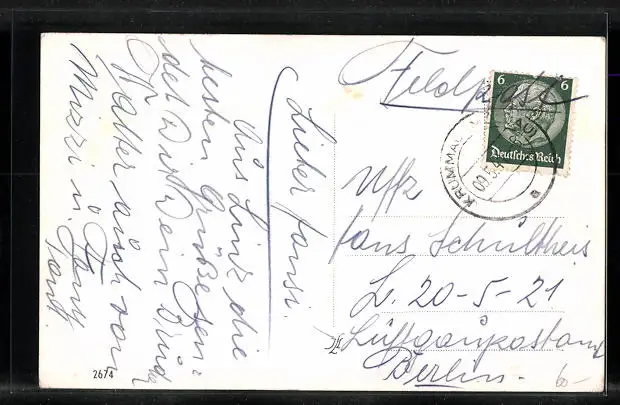 Lieber Hansi.
Aus Linz die
besten Grüße sen=
det Dir Dein Bruder
Walter auch von
Mizzi u.
Feldpost
6 6
Deutsches Reich
KRUMMAU
Uffz
Hans Schultheis
L. 20-5-21
Luftgaupostamt
Berlin.
2674
60-